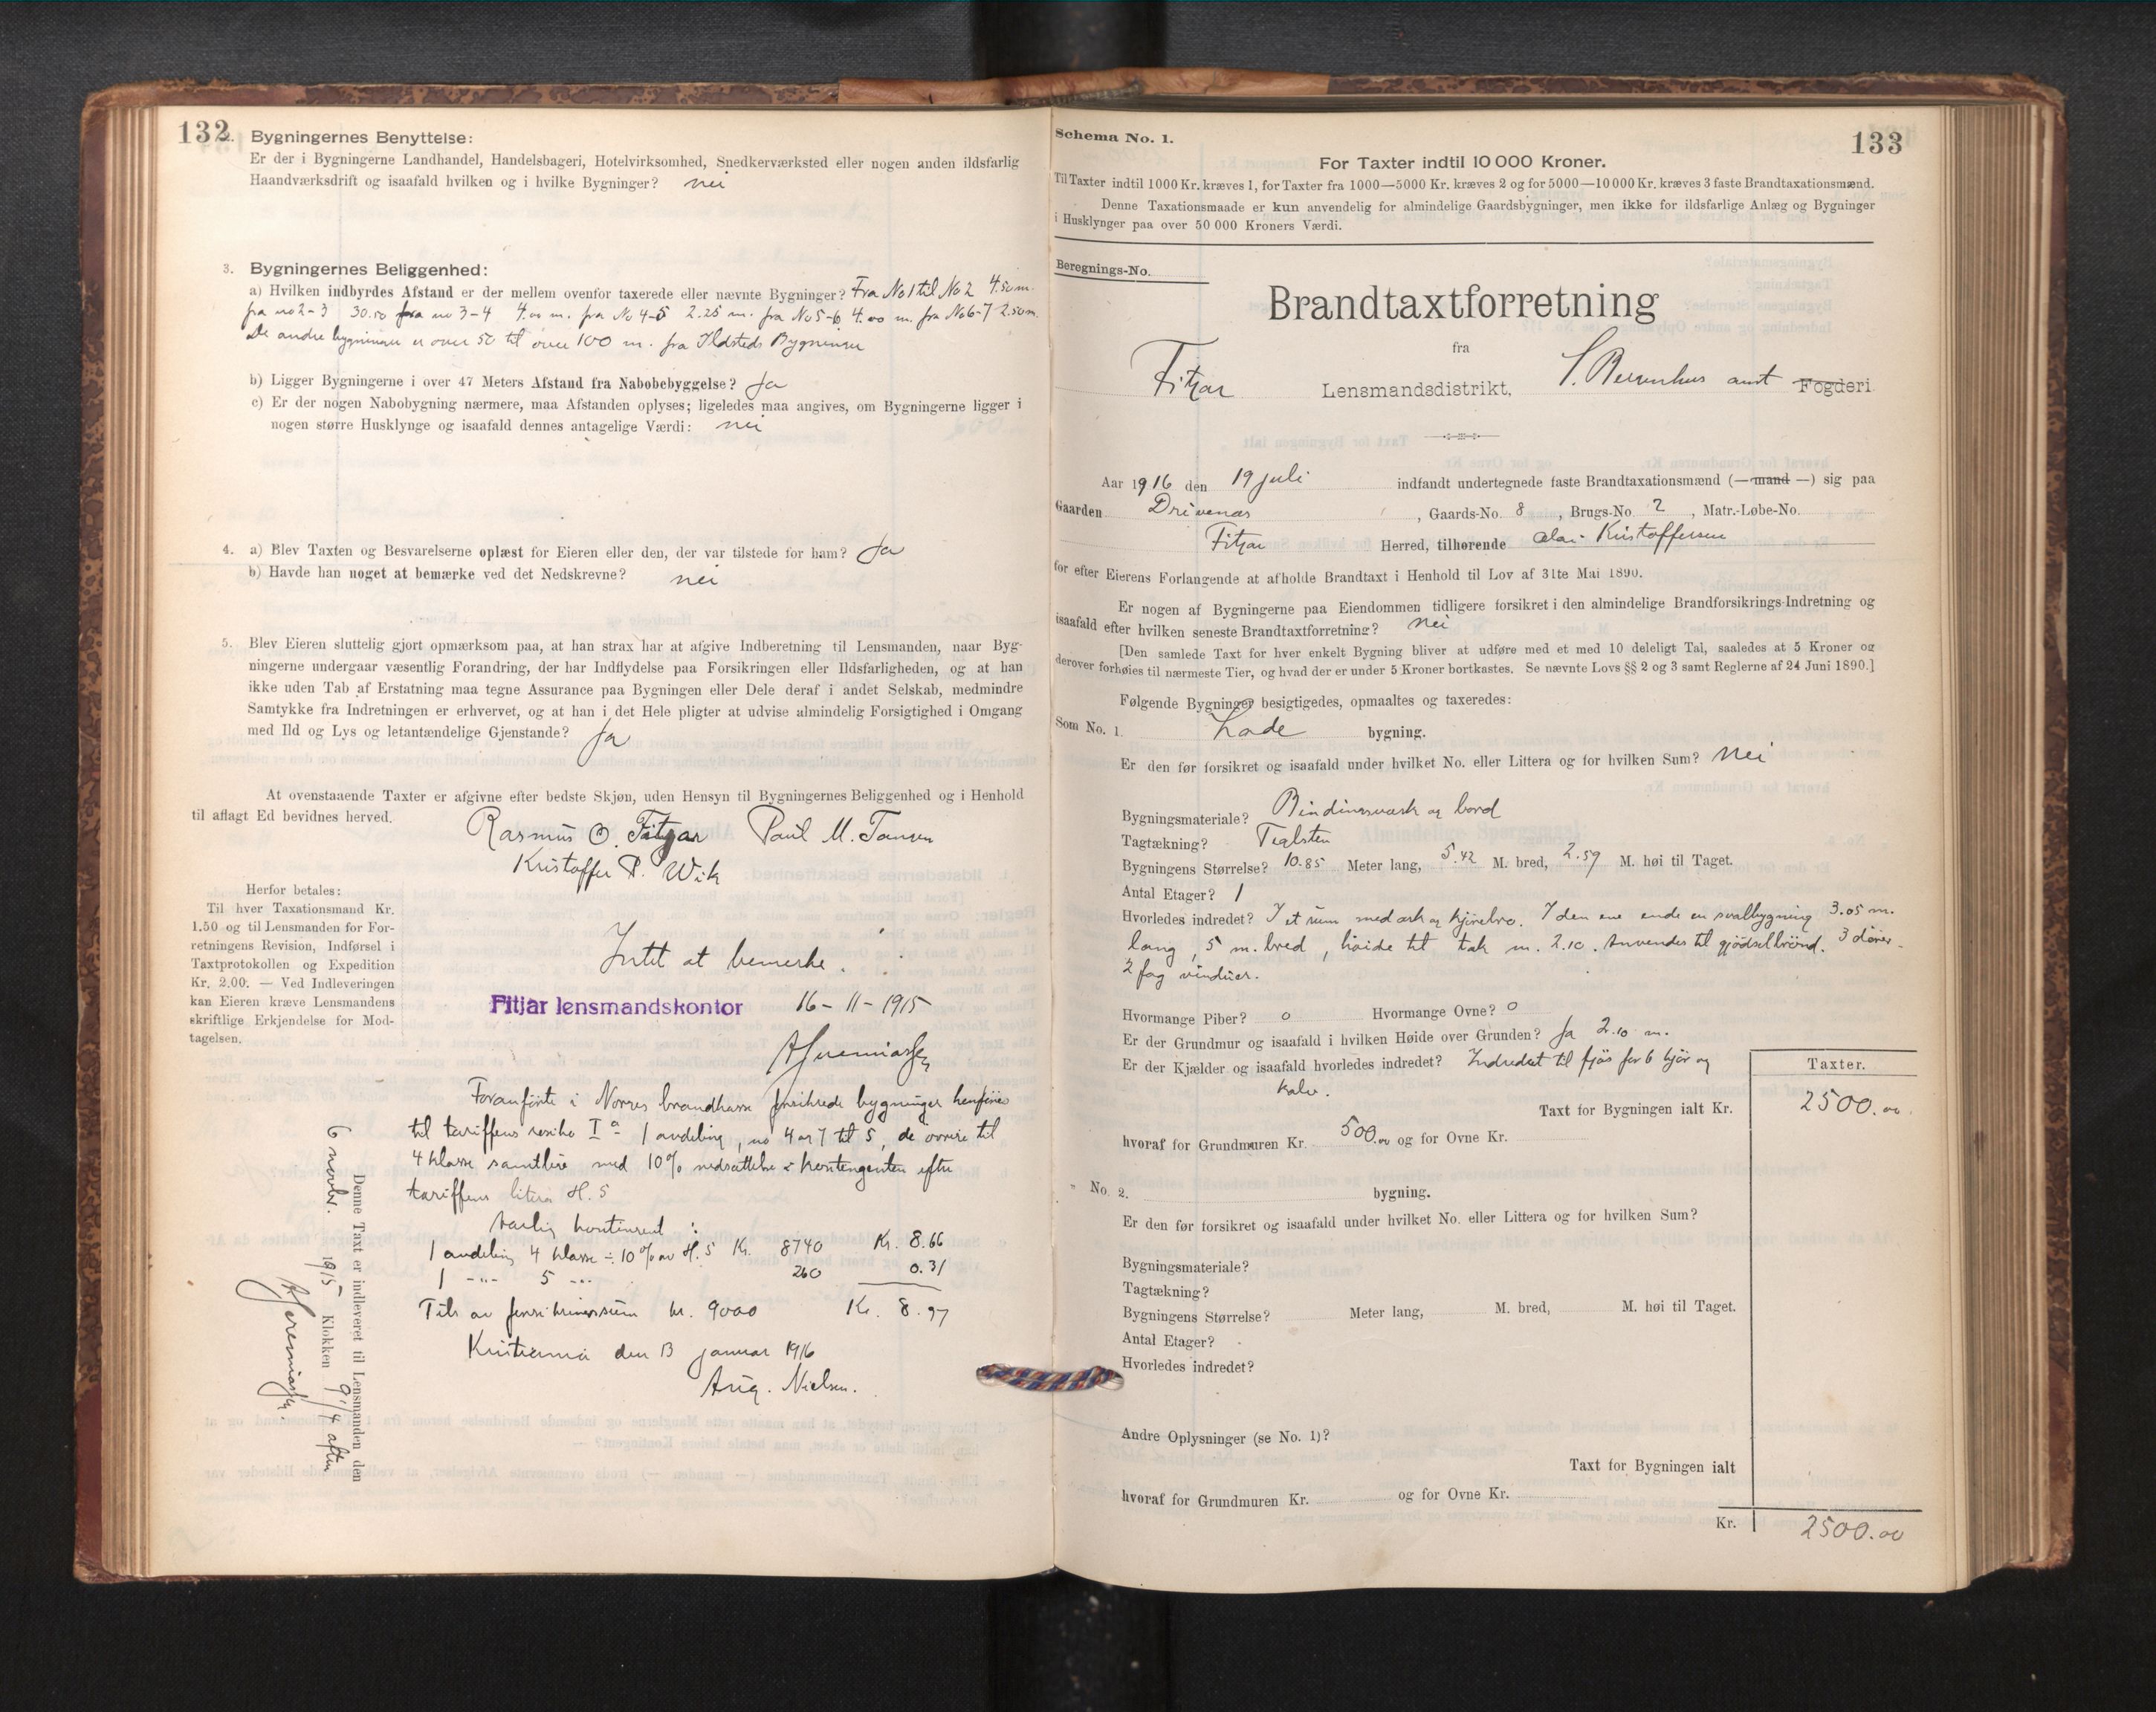 132
2. Bygningernes Benyttelse:
Er der i Bygningerne Landhandel, Handelsbageri, Hotelvirksomhed, Snedkerværksted eller nogen anden ildsfarlig
Haandværksdrift og isaafald hvilken og i hvilke Bygninger? nei
3. Bygningernes Beliggenhed:
a) Hvilken indbyrdes Afstand er der mellem ovenfor taxerede eller nævnte Bygninger? Fra No 1 til No 2 4.50 m.
fra no 2-3 30.50 fra no 3-4 4.00 m. fra No 4-5 2.25 m. fra No 5-6 4.00 m. fra No 6-7 2.50 m.
De andre bygninger er over 50 til over 100 m. fra Ildsteds Bygninger
b) Ligger Bygningerne i over 47 Meters Afstand fra Nabobebyggelse? Ja
c) Er der nogen Nabobygning nærmere, maa Afstanden oplyses; ligeledes maa angives, om Bygningerne ligger i
nogen større Husklynge og isaafald dennes antagelige Værdi: nei
4. a) Blev Taxten og Besvarelserne oplæst for Eieren eller den, der var tilstede for ham? Ja
b) Havde han noget at bemærke ved det Nedskrevne? nei
5. Blev Eieren sluttelig gjort opmærksom paa, at han strax har at afgive Indberetning til Lensmanden, naar Byg-
ningerne undergaar væsentlig Forandring, der har Indflydelse paa Forsikringen eller Ildsfarligheden, og at han
ikke uden Tab af Erstatning maa tegne Assurance paa Bygningen eller Dele deraf i andet Selskab, medmindre
Samtykke fra Indretningen er erhvervet, og at han i det Hele pligter at udvise almindelig Forsigtighed i Omgang
med Ild og Lys og letantændelige Gjenstande? Ja
At ovenstaaende Taxter er afgivne efter bedste Skjøn, uden Hensyn til Bygningernes Beliggenhed og i Henhold
til aflagt Ed bevidnes herved.
Rasmus O. Fitjar Paul M. Tansen
Kristoffer P. Wik
Herfor betales:
Til hver Taxationsmand Kr.
1.50 og til Lensmanden for For-
retningens Revision, Indførsel i
Taxtprotokollen og Expedition
Kr. 2.00. — Ved Indleveringen
kan Eieren kræve Lensmandens
skriftlige Erkjendelse for Mod-
tagelsen.
Intet at bemerke.
Fitjar lensmandskontor 16-11-1915
Foranførte i Norges brandkasse forsikrede bygninger henføres
til tariffens risiko Iª 1 avdeling, no 4 og 7 til 5, de øvrige til
4 klasse samtlige med 10% nedsættelse i kontingenten efter
tariffens litera H. 5
Aarlig kontingent:
1 avdeling 4 klasse ÷ 10% av H. 5 Kr. 8740 Kr. 8.66
1 -"- 5 -"- 260 0.31
Tils av forsikringssum kr. 9000 Kr. 8.97
Kristiania den 13 januar 1916
Aug. Nielsen.
Denne Taxt er indleveret til Lensmanden den
6 novbr. 1915 Klokken 9 1/4 aften
133
Schema No. 1.
For Taxter indtil 10 000 Kroner.
Til Taxter indtil 1000 Kr. kræves 1, for Taxter fra 1000—5000 Kr. kræves 2 og for 5000—10 000 Kr. kræves 3 faste Brandtaxationsmænd.
Denne Taxationsmaade er kun anvendelig for almindelige Gaardsbygninger, men ikke for ildsfarlige Anlæg og Bygninger
i Husklynger paa over 50 000 Kroners Værdi.
Beregnings-No.
Brandtaxtforretning
fra
Fitjar Lensmandsdistrikt, S. Bergenhus amt Fogderi
Aar 1916 den 19 juli indfandt undertegnede faste Brandtaxationsmænd (— mand —) sig paa
Gaarden Drivenæs, Gaards-No. 8, Brugs-No. 2, Matr.-Løbe-No.
Fitjar Herred, tilhørende Kristoffersen
for efter Eierens Forlangende at afholde Brandtaxt i Henhold til Lov af 31te Mai 1890.
Er nogen af Bygningerne paa Eiendommen tidligere forsikret i den almindelige Brandforsikrings-Indretning og
isaafald efter hvilken seneste Brandtaxtforretning? nei
[Den samlede Taxt for hver enkelt Bygning bliver at udføre med et med 10 deleligt Tal, saaledes at 5 Kroner og
derover forhøies til nærmeste Tier, og hvad der er under 5 Kroner bortkastes. Se nævnte Lovs §§ 2 og 3 samt Reglerne af 24 Juni 1890.]
Følgende Bygninger besigtigedes, opmaaltes og taxeredes:
Som No. 1. Lade bygning.
Er den før forsikret og isaafald under hvilket No. eller Littera og for hvilken Sum? Nei
Bygningsmateriale? Bindingsværk og bord
Tagtækning? Teglsten
Bygningens Størrelse? 10.85 Meter lang, 5.42 M. bred, 2.59 M. høi til Taget.
Antal Etager? 1
Hvorledes indredet? I et rum med ark og kjørebro. I den ene ende en svalbygning 3.05 m.
lang, 5 m. bred, høide til tak m. 2.10. Anvendes til gjødselbrønd. 3 dører.
2 fag vinduer.
Hvormange Piber? 0 Hvormange Ovne? 0
Er der Grundmur og isaafald i hvilken Høide over Grunden? Ja 2.10 m.
Er der Kjælder og isaafald hvorledes indredet? Indredet til fjøs for 6 kjør og
kalv.
Taxter.
Taxt for Bygningen ialt Kr. 2500.00
hvoraf for Grundmuren Kr. 500.00 og for Ovne Kr.
" No. 2. bygning.
Er den før forsikret og isaafald under hvilket No. eller Littera og for hvilken Sum?
Bygningsmateriale?
Tagtækning?
Bygningens Størrelse? Meter lang, M. bred, M. høi til Taget.
Antal Etager?
Hvorledes indredet?
Andre Oplysninger (se No. 1)?
Taxt for Bygningen ialt
hvoraf for Grundmuren Kr. og for Ovne Kr.
Kr. 2500.00